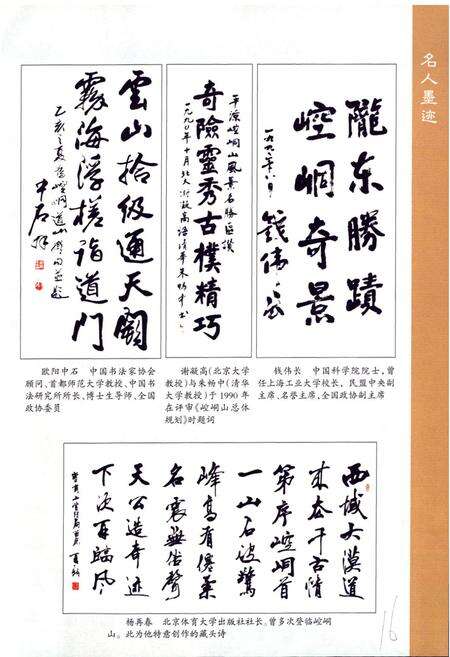 名人墨迹
陇东勝蹟
崆峒奇景
一九九二年六月
钱伟长
平凉崆峒山風景名勝區讚
奇險靈秀古樸精巧
一九九〇年十月北大謝凝高清華朱畅中书
雲山拾级通天闕
霧海浮槎诣道門
乙亥之夏登崆峒道山
中石
欧阳中石　中国书法家协会
顾问、首都师范大学教授、中国书
法研究所所长、博士生导师、全国
政协委员
谢凝高(北京大学
教授)与朱畅中(清华
大学教授)于1990年
在评审《崆峒山总体
规划》时题词
钱伟长　中国科学院院士,曾
任上海工业大学校长，民盟中央副
主席、名誉主席,全国政协副主席
西域大漠道
来去千古情
第序崆峒首
一山石破驚
峰高有僊氣
名震無倍聲
天公造奇迹
下次再臨风
杨再春　北京体育大学出版社社长。曾多次登临崆峒
山。此为他特意创作的藏头诗
16